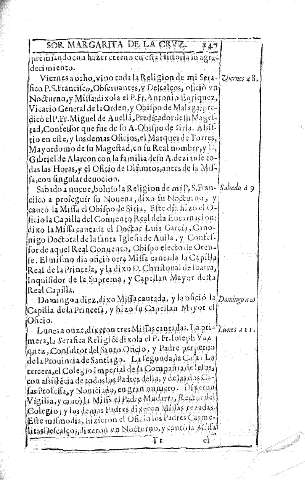 SOR MARGARITA DE LA CRVZ.
premiando con hazer eterno en esta Historia su agra-
decimiento.
Viernes a ocho, vino toda la Religion de mi Sera-
fico P.S. Francisco, Obseruantes, y Descalços, oficiò vn
Nocturno, y Missa: dixola el P. Fr. Antonio Enriquez,
Vicario General de la Orden, y Obispo de Malaga: predi-
cò el P. Fr. Miguel de Auellà, Predicador de su Mages-
tad, Confessor que fue de su A. Obispo de Siria. Assis-
tio en este, y los demas Oficios, el Marques de Torres,
Mayordomo de su Magestad, en su Real nombre, y D.
Gabriel de Alarcon con la familia de su A. dezia to-
das las Horas, y el Oficio de Difuntos, antes de la Mis-
sa, con singular deuocion.
Sabado a nueue, boluio la Religion de mi P. S. Fran-
cisco a proseguir su Nouena, dixo su Nocturno, y
cantò la Missa el Obispo de Siria. Este dia hizo el O-
ficio la Capilla del Conuento Real de la Encarnacion:
dixo la Missa cantada el Doctor Luis Garcia, Cano-
nigo Doctoral de la Santa Iglesia de Auila, y Confes-
sor de aquel Real Conuento, Obispo electo de Orense.
El mismo dia oficiò otra Missa cantada la Capilla
Real de la Princesa, y la dixo D. Christoual de Ibarra,
Inquisidor de la Suprema, y Capellan Mayor desta
Real Capilla.
Domingo a diez, dixo Missa cantada, y la oficiò la
Capilla de la Princesa, y hizo su Capellan Mayor el
Oficio.
Lunes a onze, dixeron tres Missas cantadas. La pri-
mera, la Serafica Religion: dixola el P. Fr. Ioseph Vaz-
quez, Consultor del Santo Oficio, y Padre perpetuo
de la Prouincia de Santiago. La segunda, la Casa. La
tercera, el Colegio Imperial de la Compañia de Iesus,
con assistencia de todos los Padres della, y de las
Casas Professa, y Nouiciado, en gran numero. Dixeron
Vigilia, y cantò la Missa el Padre Rector del
Colegio; y los demas Padres dixeron Missas rezadas.
Este mismo dia, hizieron el Oficio los Padres Carme-
litas Descalços, dixeron vn Nocturno, y cantò la Missa
Tt
el
Viernes a 8.
Sabado a 9
Domingo a 10
Lunes a 11.